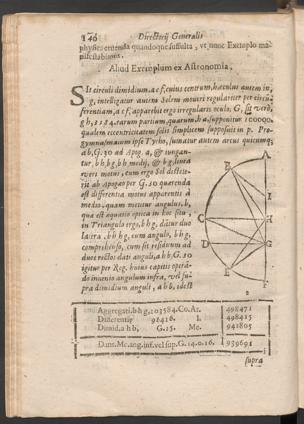 146 Directorij Generalis
physices ertensa quandoque suffulta, vt nunc Exemplo ma-
nifestabimus.
Aliud Exemplum ex Astronomia.
Sit circuli dimidium, a c f, cuius centrum, h, oculus autem in,
g, intelligatur autem Solem moueri regulariter per circū-
ferentiam, a c f, apparebit ergo irregularis oculo, G, sit verò,
g h, 3584. earum partium, quarum, h a, supponitur 100000.
qualem eccentricitatem solis simplicem supposuit in p. Pro-
gymnasmatum ipse Tycho, sumatur autem arcus quicumq;
ab, G. 30 ad Apog. a, & iungan-
tur, b h, b g, b h medij, & b g, linea
veri motus, cum ergo Sol destite-
rit ab apogæo per G. 30 quærenda
est differentia motus apparentis à
medio, quam metitur angulus, b,
quæ est æquatio optica in hoc situ,
in Triangulo ergo, b h g, datur duo
latera, b h, h g, cum angulo, b h g,
comprehenso, cum sit residuum ad
duos rectos dati anguli, a h b, G. 30
igitur per Reg. huius capitis operā-
do inuento angulum infra, vel su-
pra dimidium anguli, a h b, idest
A
B
I
C
H
D
G
E
F
Aggregati. b h g, 103584. Co. Ar. 498471
Differentiæ 96416. l. 498415
Dimid. a h b, G. 15. Me. 942805
Dant. Me. ang. inf. vel sup. G. 14. 0. 16. 939691
supra